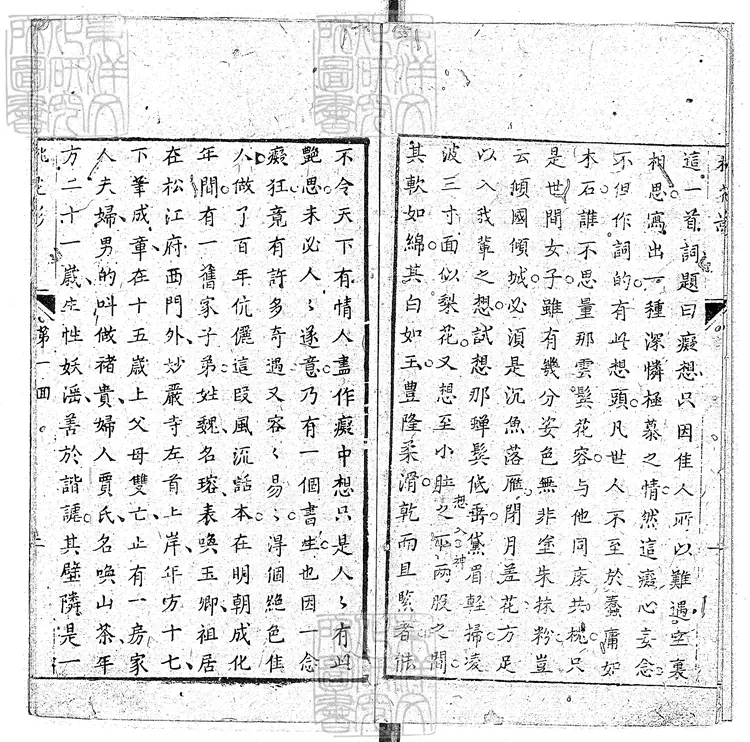 這一首詞題曰癡想只因佳人所以難遇空裏
相思寫出一種深憐極慕之情然這癡心妄念
不但作詞的有此想頭凡世人不至於蠢庸如
木石誰不思量那雲鬟花容与他同床共枕只
是世間女子雖有幾分姿色無非塗朱抹粉豈
云傾國傾城必須是沉魚落雁閉月羞花方足
以入我輩之想試想那蟬鬂低垂黛眉輕掃凌
波三寸面似梨花又想至小肚之下兩股之間
想入神
其軟如綿其白如玉豊隆柔滑乾而且緊者
不令天下有情人盡作癡中想只是人〻有此
艷思未必人〻遂意乃有一個書生也因一念
癡狂竟有許多奇遇又容〻易〻淂個絶色佳
人做了百年伉儷這段風流話本在明朝成化
年間有一舊家子弟姓魏名瑢表喚玉卿祖居
在松江府西門外妙嚴寺左首上岸年方十七
下筆成章在十五歲上父母雙亡止有一房家
人夫婦男的叫做褚貴婦人賈氏名喚山茶年
方二十一歲生性妖淫善於諧謔其壁隣是一
第一回